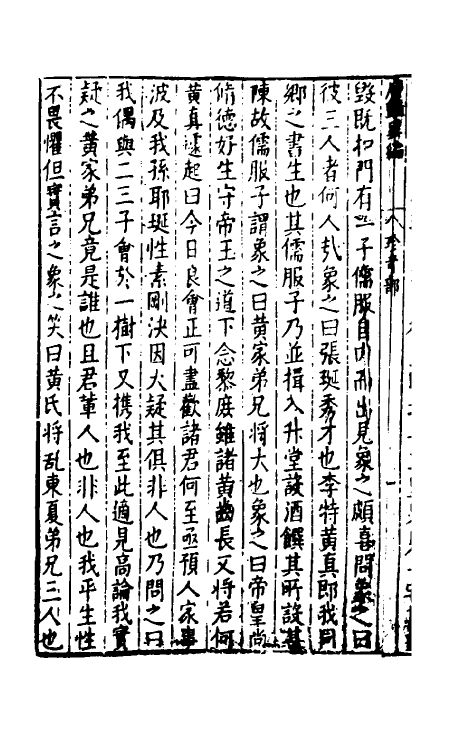 毀既扣門有一子儒服自内而出見象之頗喜問象之曰
彼三人者何人㢤象之曰張珽秀才也李特黄真即我同
鄉之書生也其儒服子乃並揖入升堂設酒饌其所設甚
陳故儒服子謂象之曰黄家弟兄將大也象之曰帝皇尚
脩德好生守帝王之道下念黎庶雖諸黄齒長又將若何
黄真遽起曰今日良會正可盡歡諸君何至亟預人家事
波及我孫耶珽性素剛決因大疑其俱非人也乃問之曰
我偶與二三子會於一樹下又携我至此適見高論我實
疑之黄家弟兄竟是誰也且君軰人也非人也我平生性
不畏懼但實言之象之笑曰黄氏將乱東夏弟兄三人也